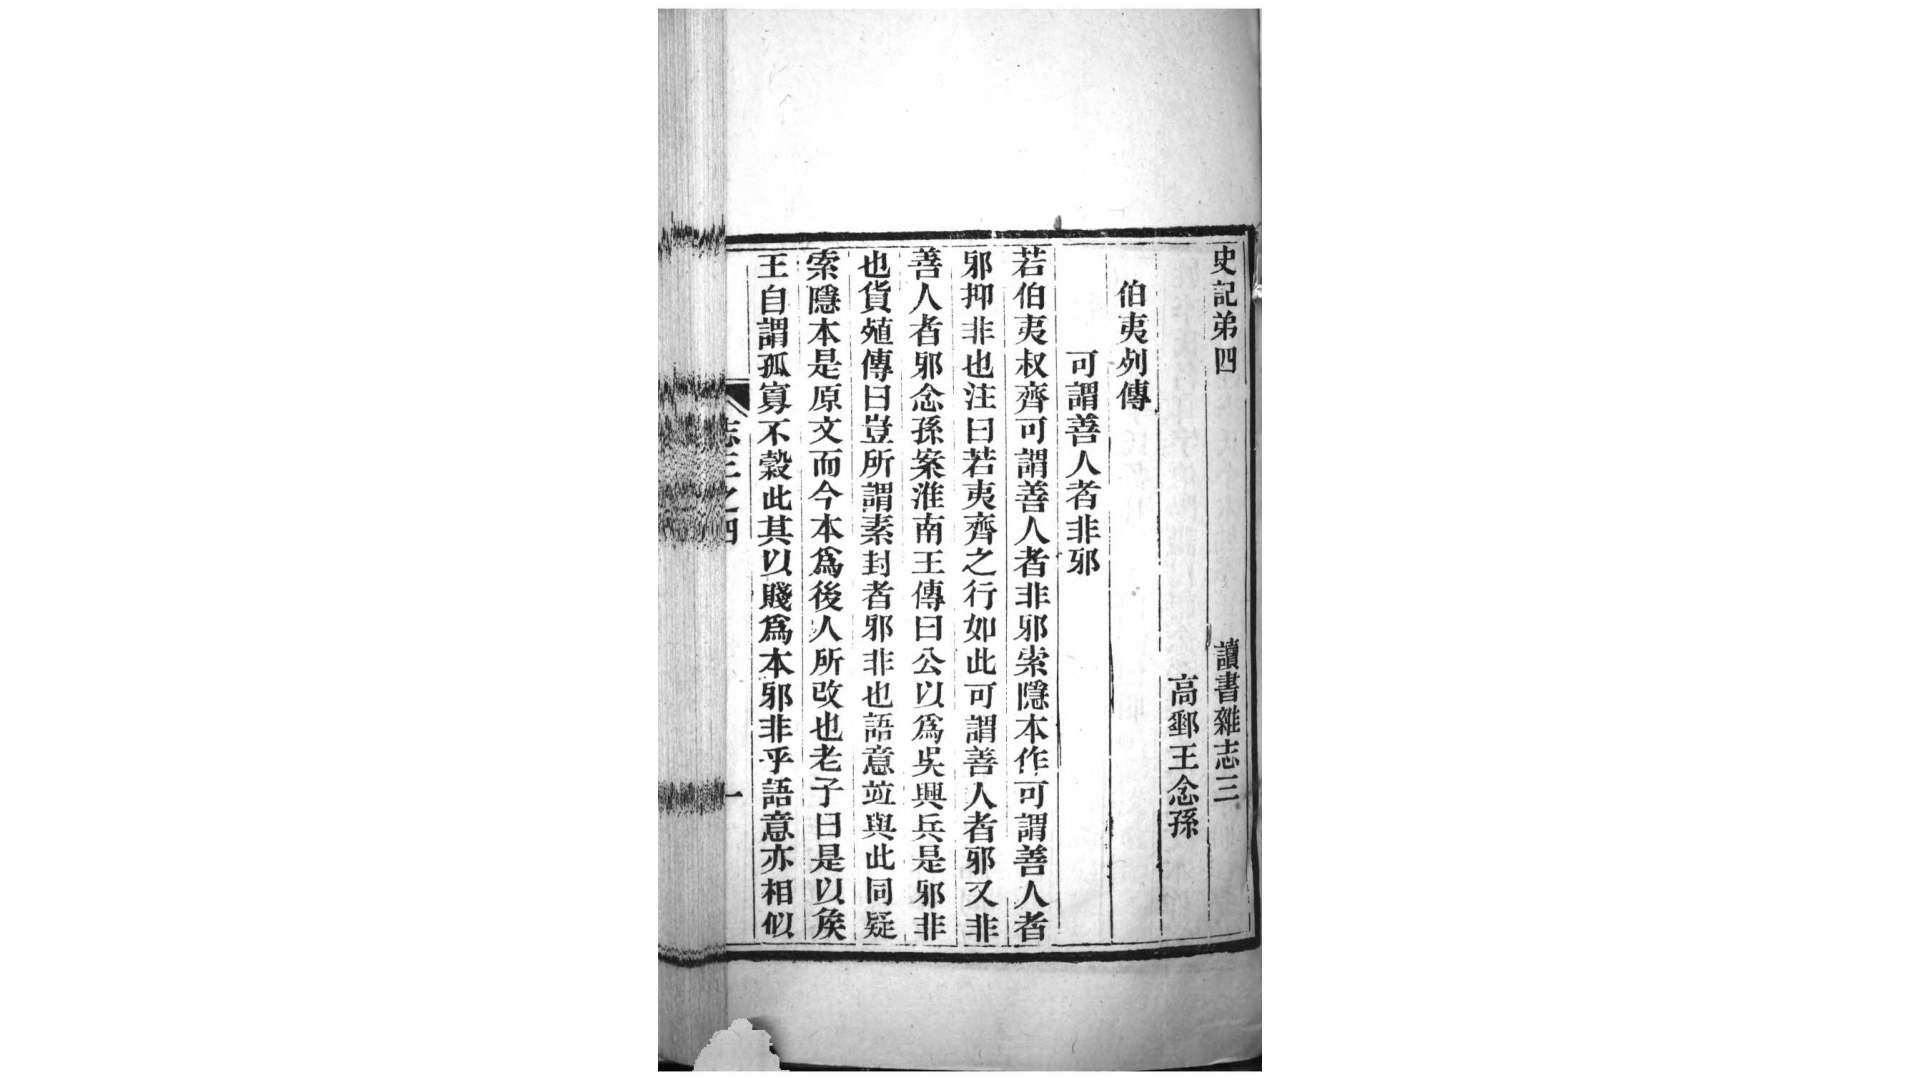 史記弟四 讀書雜志三
高郵王念孫
伯夷列傳
可謂善人者非邪
若伯夷叔齊可謂善人者非邪索隱本作可謂善人者
邪抑非也注曰若夷齊之行如此可謂善人者邪又非
善人者邪念孫案淮南王傳曰公以爲吳興兵是邪非
也貨殖傳曰豈所謂素封者邪非也語意竝與此同疑
索隱本是原文而今本爲後人所改也老子曰是以矦
王自謂孤寡不穀此其以賤爲本邪非乎語意亦相似
志三之四 一